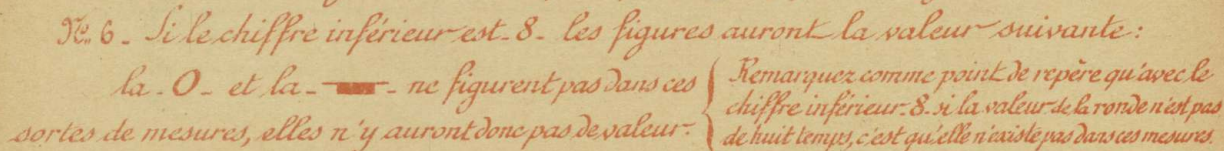 No. 6 - Si le chiffre inférieur est - 8 - les figures auront la valeur suivante :
la - O - et la - - ne figurent pas dans ces
sortes de mesures, elles n'y auront donc pas de valeur.
Remarquez comme point de repère qu'avec le
chiffre inférieur - 8 - si la valeur de la ronde n'est pas
de huit temps, c'est qu'elle n'existe pas dans ces mesures.